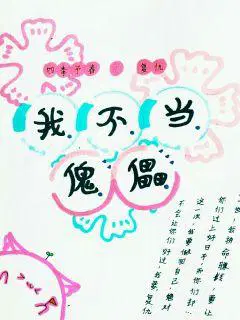 四季予春 复仇
我不当
傀儡
我拼命赚钱，要让
你们过上好日子，而你们却…
这一次，我要做回自己，绝对
不会让你们好过，我要复仇